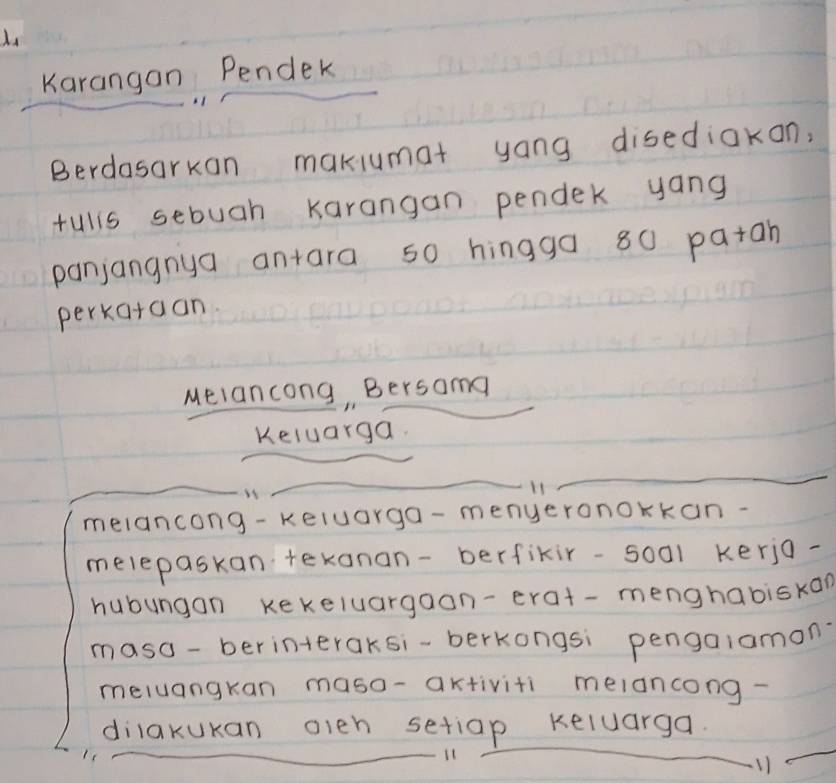 1.
Karangan Pendek
Berdasarkan maklumat yang disediakan,
tulis sebuah karangan pendek yang
panjangnya antara 50 hingga 80 patah
perkataan.
Melancong Bersama
Keluarga.
melancong - keluarga - menyeronokkan -
melepaskan tekanan - berfikir - soal kerja -
hubungan kekeluargaan - erat - menghabiskan
masa - berinteraksi - berkongsi pengalaman -
meluangkan masa - aktiviti melancong -
dilakukan oleh setiap keluarga.